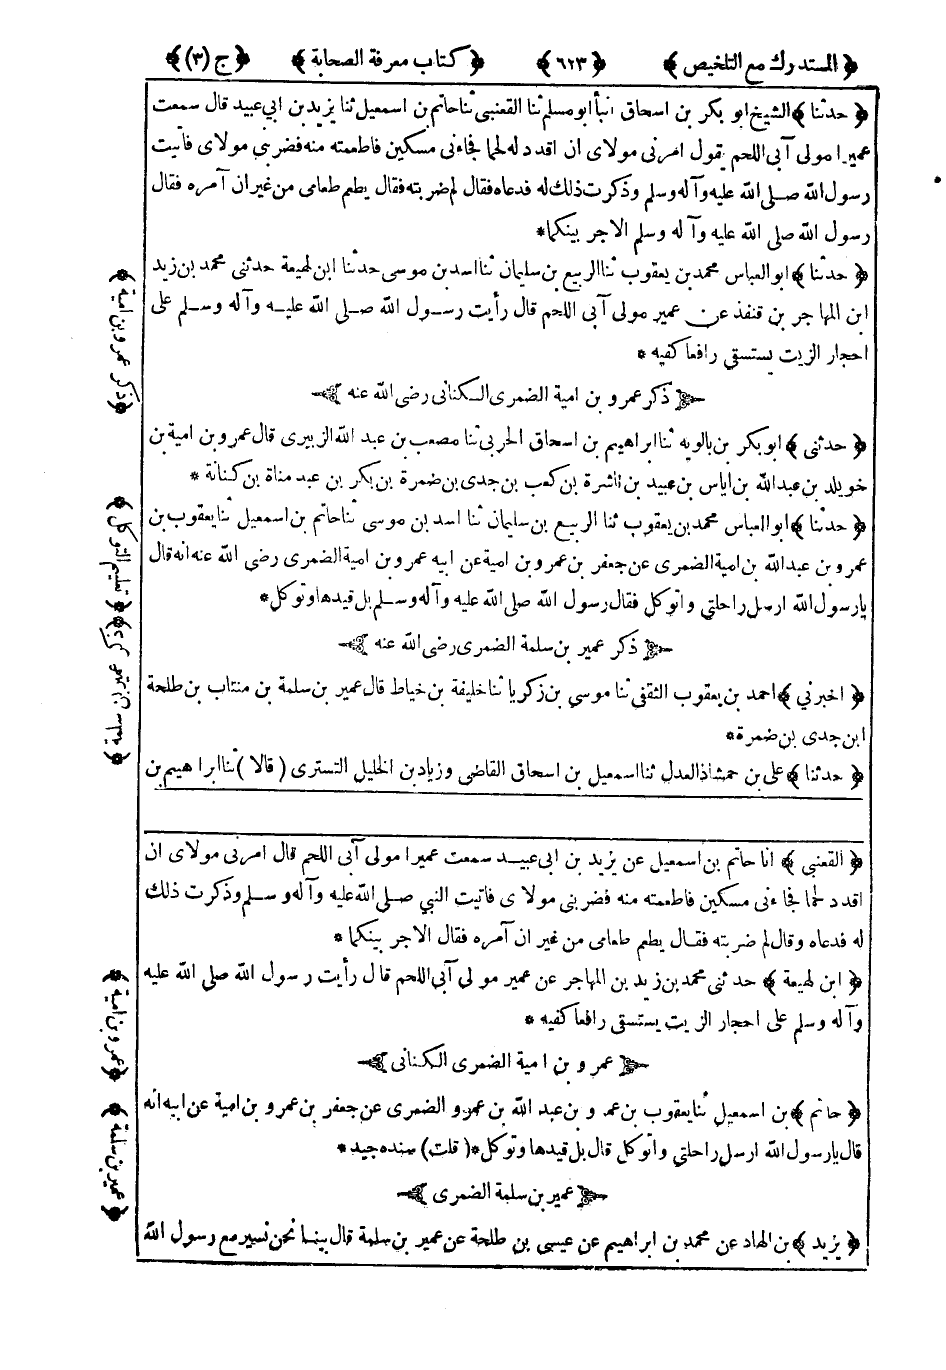 ﴿ المستدرك مع التلخيص ﴾ ﴿ ٦٢٣ ﴾ ﴿ كتاب معرفة الصحابة ﴾ ﴿ ج (٣) ﴾
﴿ حدثنا ﴾ الشيخ ابو بكر بن اسحاق انبأ ابو مسلم ثنا القعنبى ثنا حاتم بن اسمعيل ثنا يزيد بن ابى عبيد قال سمعت
عميرا مولى آبى اللحم يقول امرنى مولاى ان اقدد له لحما فجاءنى مسكين فاطعمته منه فضربنى مولاى فاتيت
رسول الله صلى الله عليه وآله وسلم وذكرت ذلك له فدعاه فقال لم ضربته فقال يطعم طعامى من غير ان آمره فقال
رسول الله صلى الله عليه وآله وسلم الاجر بينكما *
﴿ حدثنا ﴾ ابو العباس محمد بن يعقوب ثنا الربيع بن سليمان ثنا اسد بن موسى حدثنا ابن لهيعة حدثنى محمد بن زيد
ابن المهاجر بن قنفذ عن عمير مولى آبى اللحم قال رأيت رسول الله صلى الله عليه وآله وسلم على
احجار الزيت يستسقى رافعا كفيه *
ذكر عمرو بن امية الضمرى الكنانى رضى الله عنه
﴿ حدثنى ﴾ ابو بكر بن بالويه ثنا ابراهيم بن اسحاق الحربى ثنا مصعب بن عبد الله الزبيرى قال عمرو بن امية بن
خويلد بن عبد الله بن اياس بن عبيد بن ناشرة بن كعب بن جدى بن ضمرة بن بكر بن عبد مناة بن كنانة *
﴿ حدثنا ﴾ ابو العباس محمد بن يعقوب ثنا الربيع بن سليمان ثنا اسد بن موسى ثنا حاتم بن اسمعيل ثنا يعقوب بن
عمرو بن عبد الله بن امية الضمرى عن جعفر بن عمرو بن امية عن ابيه عمرو بن امية الضمرى رضى الله عنه انه قال
يا رسول الله ارسل راحلتى واتوكل فقال رسول الله صلى الله عليه وآله وسلم بل قيدها وتوكل *
ذكر عمير بن سلمة الضمرى رضى الله عنه
﴿ اخبرني ﴾ احمد بن يعقوب الثقفى ثنا موسى بن زكريا ثنا خليفة بن خياط قال عمير بن سلمة بن منتاب بن طلحة
ابن جدى بن ضمرة *
﴿ حدثنا ﴾ على بن حمشاذ العدل ثنا اسمعيل بن اسحاق القاضى وزياد بن الخليل التسترى ( قالا ) ثنا ابراهيم بن
﴿ القعنبى ﴾ انا حاتم بن اسمعيل عن يزيد بن ابى عبيد سمعت عميرا مولى آبى اللحم قال امرنى مولاى ان
اقدد لحما فجاءنى مسكين فاطعمته منه فضربنى مولاى فاتيت النبي صلى الله عليه وآله وسلم وذكرت ذلك
له فدعاه وقال لم ضربته فقال يطعم طعامى من غير ان آمره فقال الاجر بينكما *
﴿ ابن لهيعة ﴾ حدثنى محمد بن زيد بن المهاجر عن عمير مولى آبى اللحم قال رأيت رسول الله صلى الله عليه
وآله وسلم على احجار الزيت يستسقى رافعا كفيه *
عمرو بن امية الضمرى الكنانى
﴿ حاتم ﴾ بن اسمعيل ثنا يعقوب بن عمرو بن عبد الله بن عمرو الضمرى عن جعفر بن عمرو بن امية عن ابيه انه
قال يا رسول الله ارسل راحلتي واتوكل قال بل قيدها وتوكل * ( قلت ) سنده جيد *
عمير بن سلمة الضمرى
﴿ يزيد ﴾ بن الهاد عن محمد بن ابراهيم عن عيسى بن طلحة عن عمير بن سلمة قال بينا نحن نسير مع رسول الله
﴿ ذكر عمرو بن امية ﴾
﴿ تعليم التوكل ﴾
﴿ ذكر عمير بن سلمة ﴾
﴿ عمرو بن امية ﴾
﴿ عمير بن سلمة ﴾